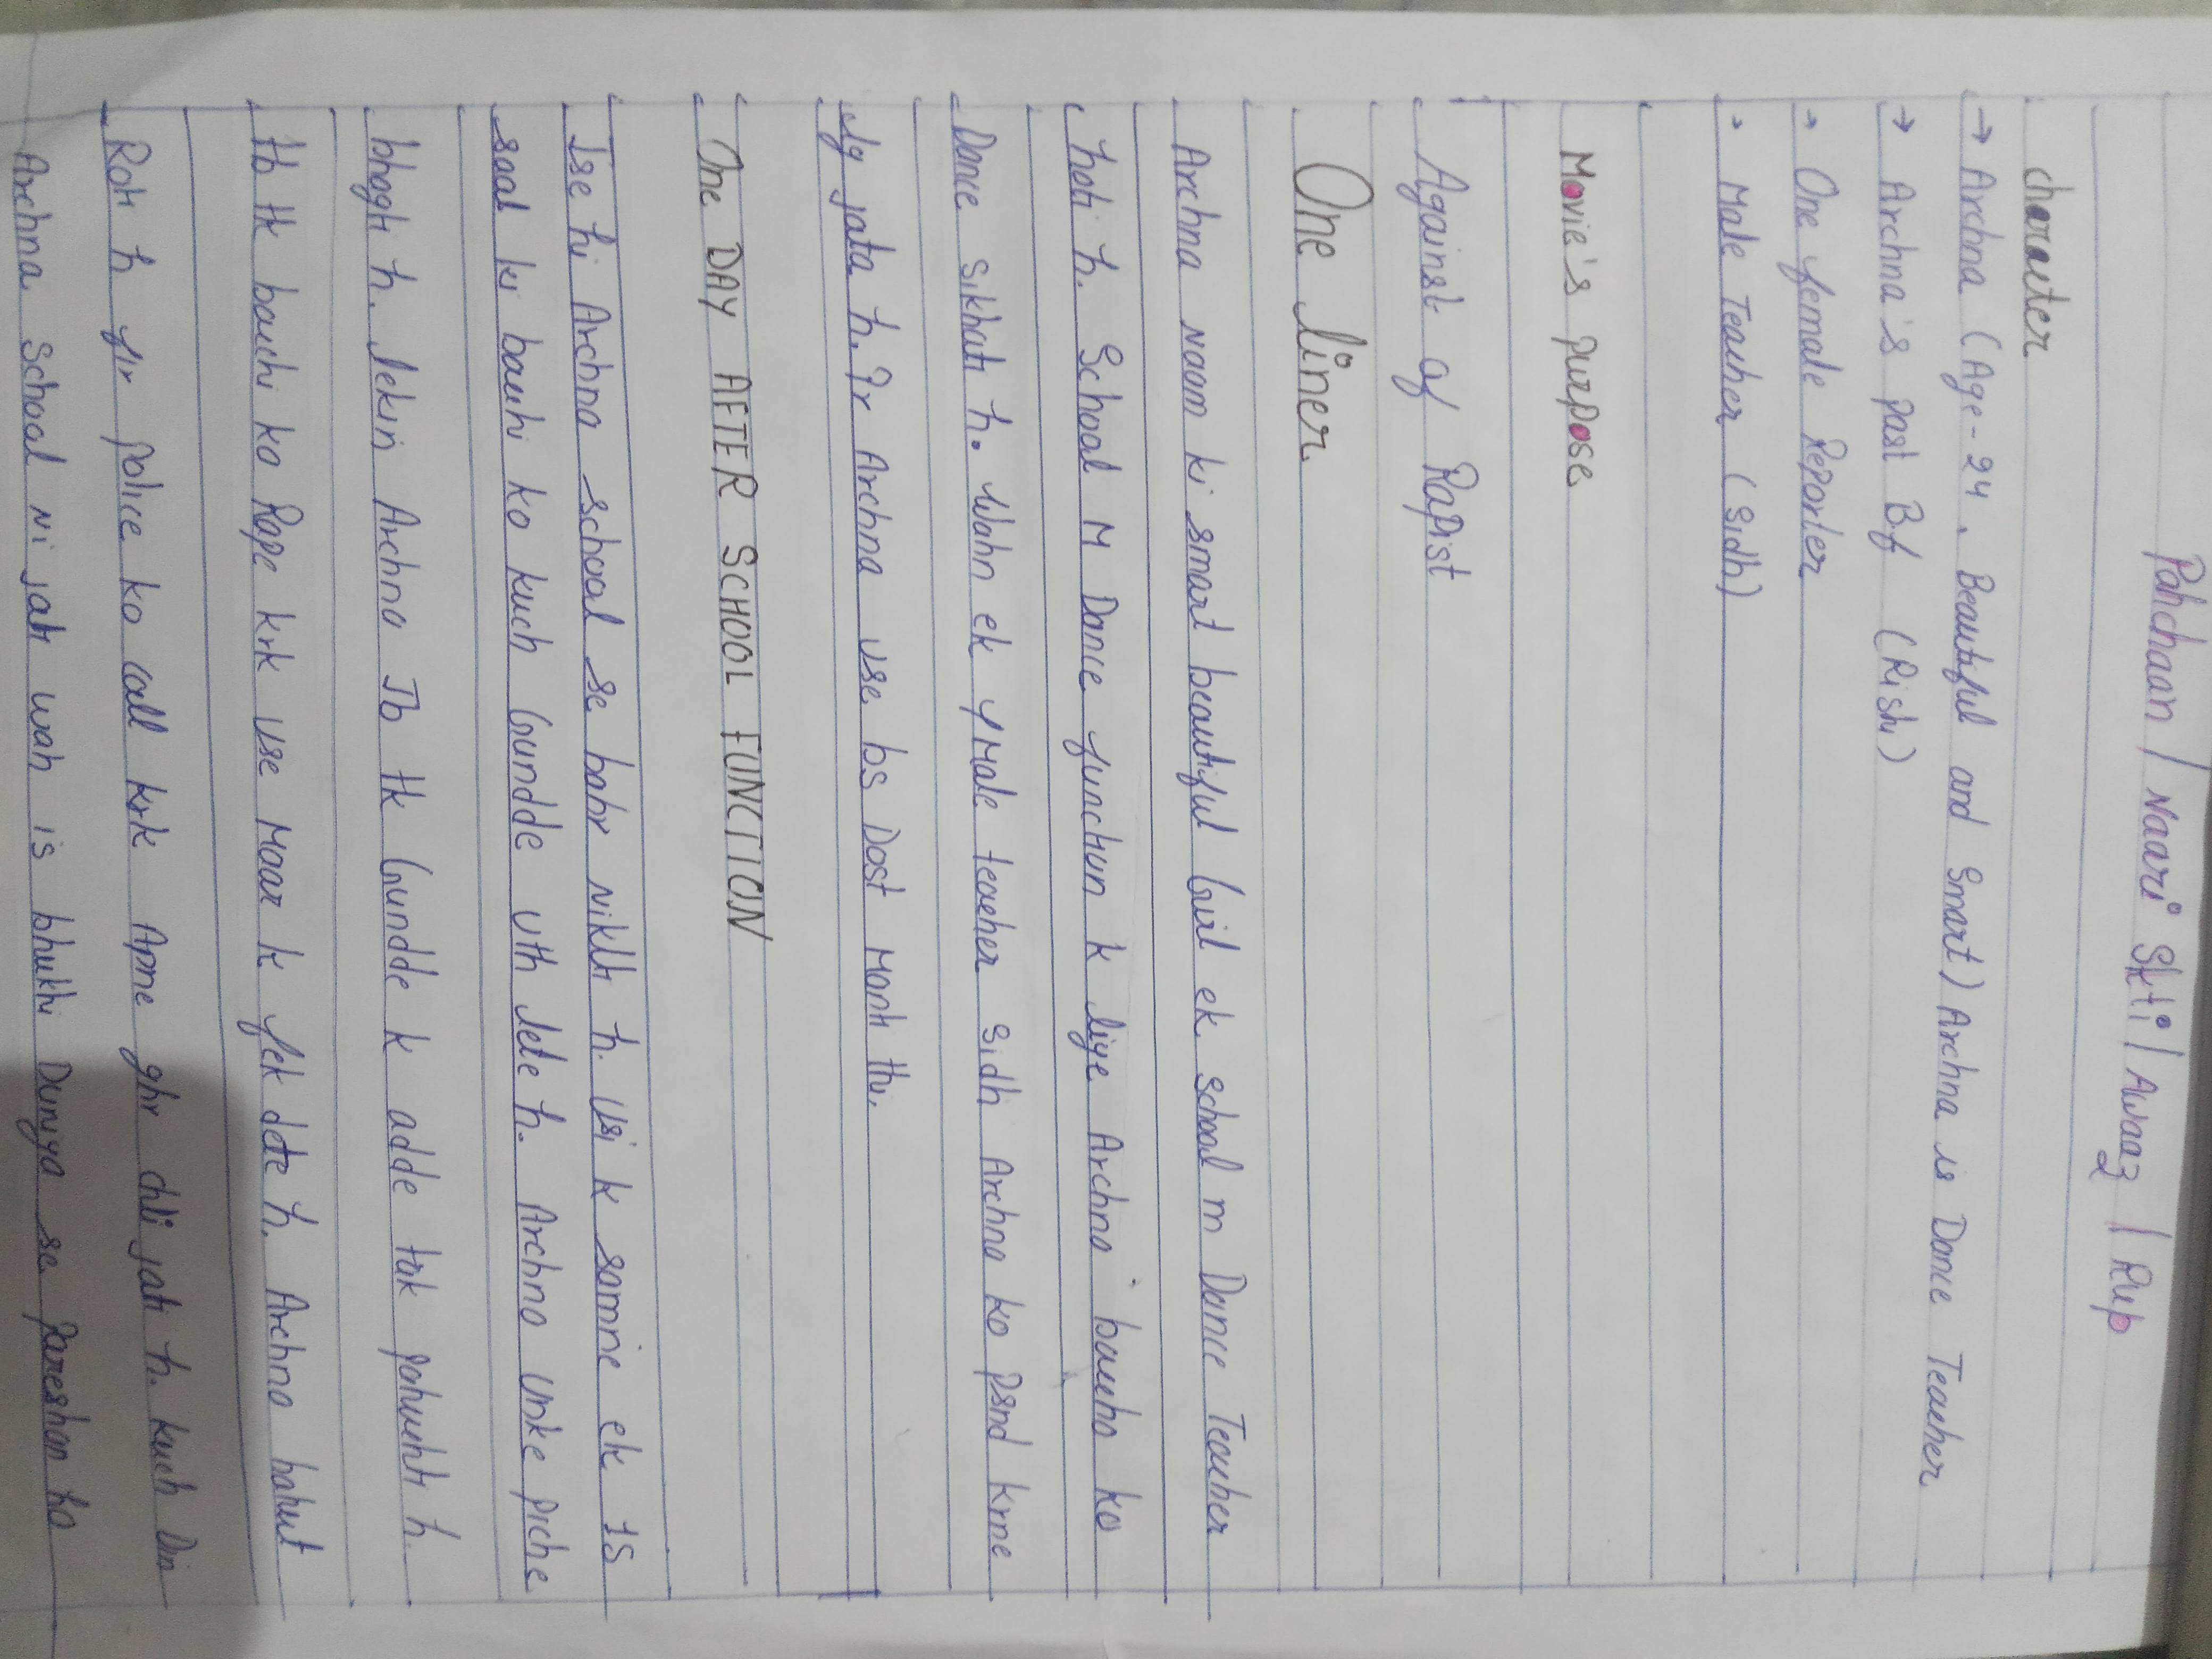 Pahchaan / Naari Skti / Awaaz / Rup
character
→ Archna (Age-24, Beautiful and Smart) Archna is Dance Teacher.
→ Archna's past Bf (Rishi)
→ One female Reporter
→ Male Teacher (Sidh)
Movie's purpose
Against of Rapist
One liner.
Archna naam ki smart beautiful Girl ek school m Dance Teacher
hoti h. School M Dance function k liye Archna baccho ko
Dance sikhati h. Wahn ek Male teacher Sidh Archna ko psnd krne
lg jata h. Pr Archna use bs Dost manti thi.
One DAY AFTER SCHOOL FUNCTION
Jse hi Archna school se bahr niklti h. Usi k samne ek 15
saal ki bacchi ko kuch Gundde uth lete h. Archna unke piche
bhagti h. lekin Archna Jb tk Gundde k adde tak pahuchti h.
tb tk bacchi ko Rape krk use Maar k fek dete h. Archna bahut
Roti h fir police ko call krk Apne ghr chli jati h. kuch Din
Archna School ni jati wah is bhukhi Duniya se pareshan ho